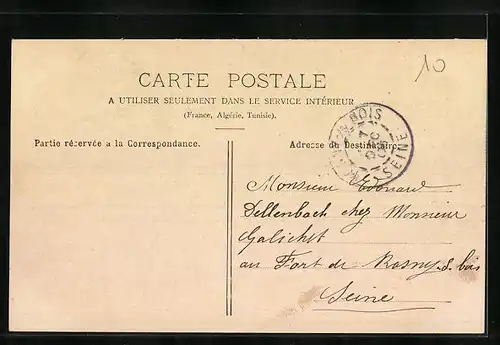 10
CARTE POSTALE
A UTILISER SEULEMENT DANS LE SERVICE INTÉRIEUR
(France, Algérie, Tunisie).
Partie réservée a la Correspondance.
Adresse du Destinataire.
BOIS
SEINE
Monsieur Edouard
Dellenbach chez Monsieur
Galichet
au Fort de Rosny s. bois
Seine